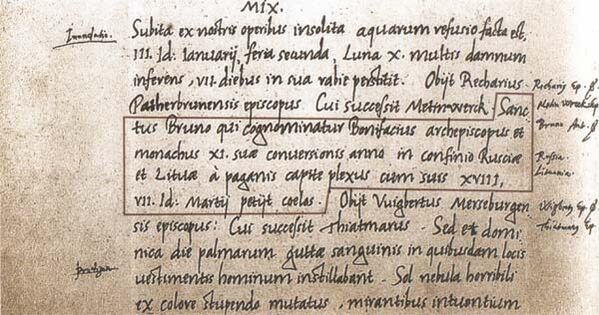 MIX.
Inundatio.
Subita ex nostris operibus insolita aquarum refusio facta est,
III. Id: Ianuarij, feria secunda, Luna X. multis damnum
inferens, VII. diebus in sua rabie perstitit. Obijt Recharius
Patherbrunensis episcopus Cui successit Meinwerck. Sanc
tus Bruno qui cognominatur Bonifacius archepiscopus et
monachus XI. suæ conversionis anno in confinio Rusciæ
et Lituæ à paganis capite plexus cum suis XVIII,
VII. Id: Martij petijt coelos. Obijt Vuigbertus Merseburgen
sis episcopus: Cui successit Thiatmarus. Sed et domi
nica die palmarum guttæ sanguinis in quibusdam locis
vestimentis hominum instillabant. Sol nebula horribili
ex colore stupendo mutatus, mirantibus intuentium
Ep.
Ep.
Bruno
Russia
Lituania.
Ep.
Thiatmarus Ep.